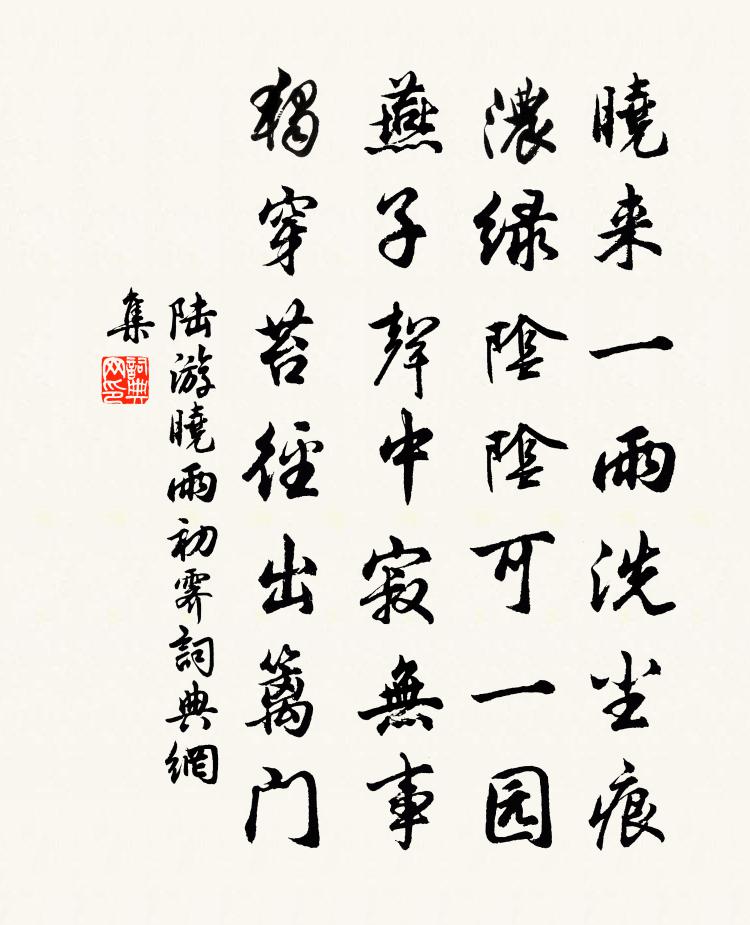 曉来一雨洗尘痕
濃緑陰陰可一园
燕子聲中寂無事
獨穿苔徑出籬门
陸游曉雨初霽詞典網
集
詞典
网印